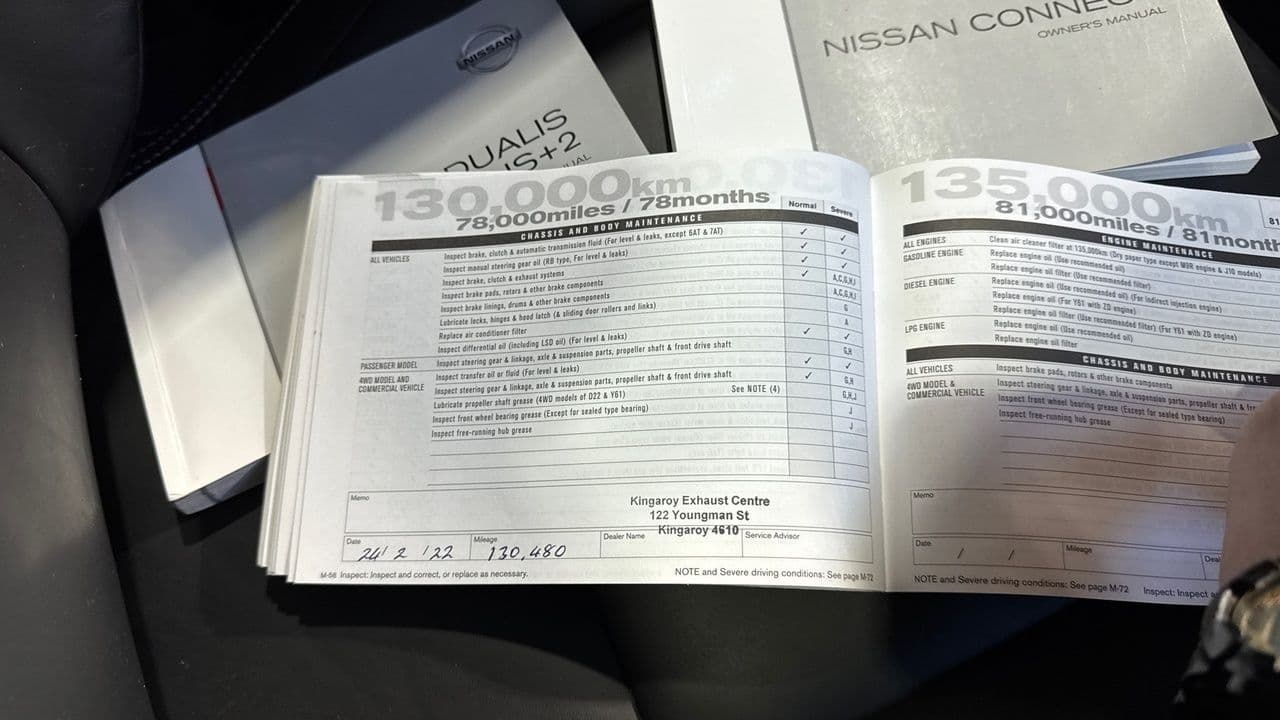 NISSAN
DUALIS
+2
NISSAN CONNEC
OWNER'S MANUAL
130,000km
78,000miles / 78months
Normal Severe
CHASSIS AND BODY MAINTENANCE
ALL VEHICLES
Inspect brake, clutch & automatic transmission fluid (For level & leaks, except 6AT & 7AT) ✓ ✓
Inspect manual steering gear oil (RB type, For level & leaks) ✓ ✓
Inspect brake, clutch & exhaust systems ✓ ✓
Inspect brake pads, rotors & other brake components ✓ A,C,G,H,J
Inspect brake linings, drums & other brake components A,C,G,H,J
Lubricate locks, hinges & hood latch (& sliding door rollers and links) G
Replace air conditioner filter A
Inspect differential oil (including LSD oil) (For level & leaks) ✓ ✓
PASSENGER MODEL Inspect steering gear & linkage, axle & suspension parts, propeller shaft & front drive shaft G,H
4WD MODEL AND COMMERCIAL VEHICLE
Inspect transfer oil or fluid (For level & leaks) ✓ ✓
Inspect steering gear & linkage, axle & suspension parts, propeller shaft & front drive shaft ✓ G,H
Lubricate propeller shaft grease (4WD models of D22 & Y61) See NOTE (4) G,H,J
Inspect front wheel bearing grease (Except for sealed type bearing) J
Inspect free-running hub grease J
Memo
Kingaroy Exhaust Centre
122 Youngman St
Kingaroy 4610
Date 24/ 2 /22
Mileage 130,480
Dealer Name
Service Advisor
M-56 Inspect: Inspect and correct, or replace as necessary.
NOTE and Severe driving conditions: See page M-72
135,000km
81,000miles / 81month
81
ENGINE MAINTENANCE
ALL ENGINES Clean air cleaner filter at 135,000km (Dry paper type except M9R engine & J10 models)
GASOLINE ENGINE Replace engine oil (Use recommended oil)
Replace engine oil filter (Use recommended filter)
DIESEL ENGINE Replace engine oil (Use recommended oil) (For indirect injection engine)
Replace engine oil (For Y61 with ZD engine)
Replace engine oil filter (Use recommended filter) (For Y61 with ZD engine)
LPG ENGINE Replace engine oil (Use recommended oil)
Replace engine oil filter
CHASSIS AND BODY MAINTENANCE
ALL VEHICLES Inspect brake pads, rotors & other brake components
4WD MODEL & COMMERCIAL VEHICLE
Inspect steering gear & linkage, axle & suspension parts, propeller shaft &
Inspect front wheel bearing grease (Except for sealed type bearing)
Inspect free-running hub grease
Memo
Date / /
Mileage
Deal
NOTE and Severe driving conditions: See page M-72
Inspect: Inspect